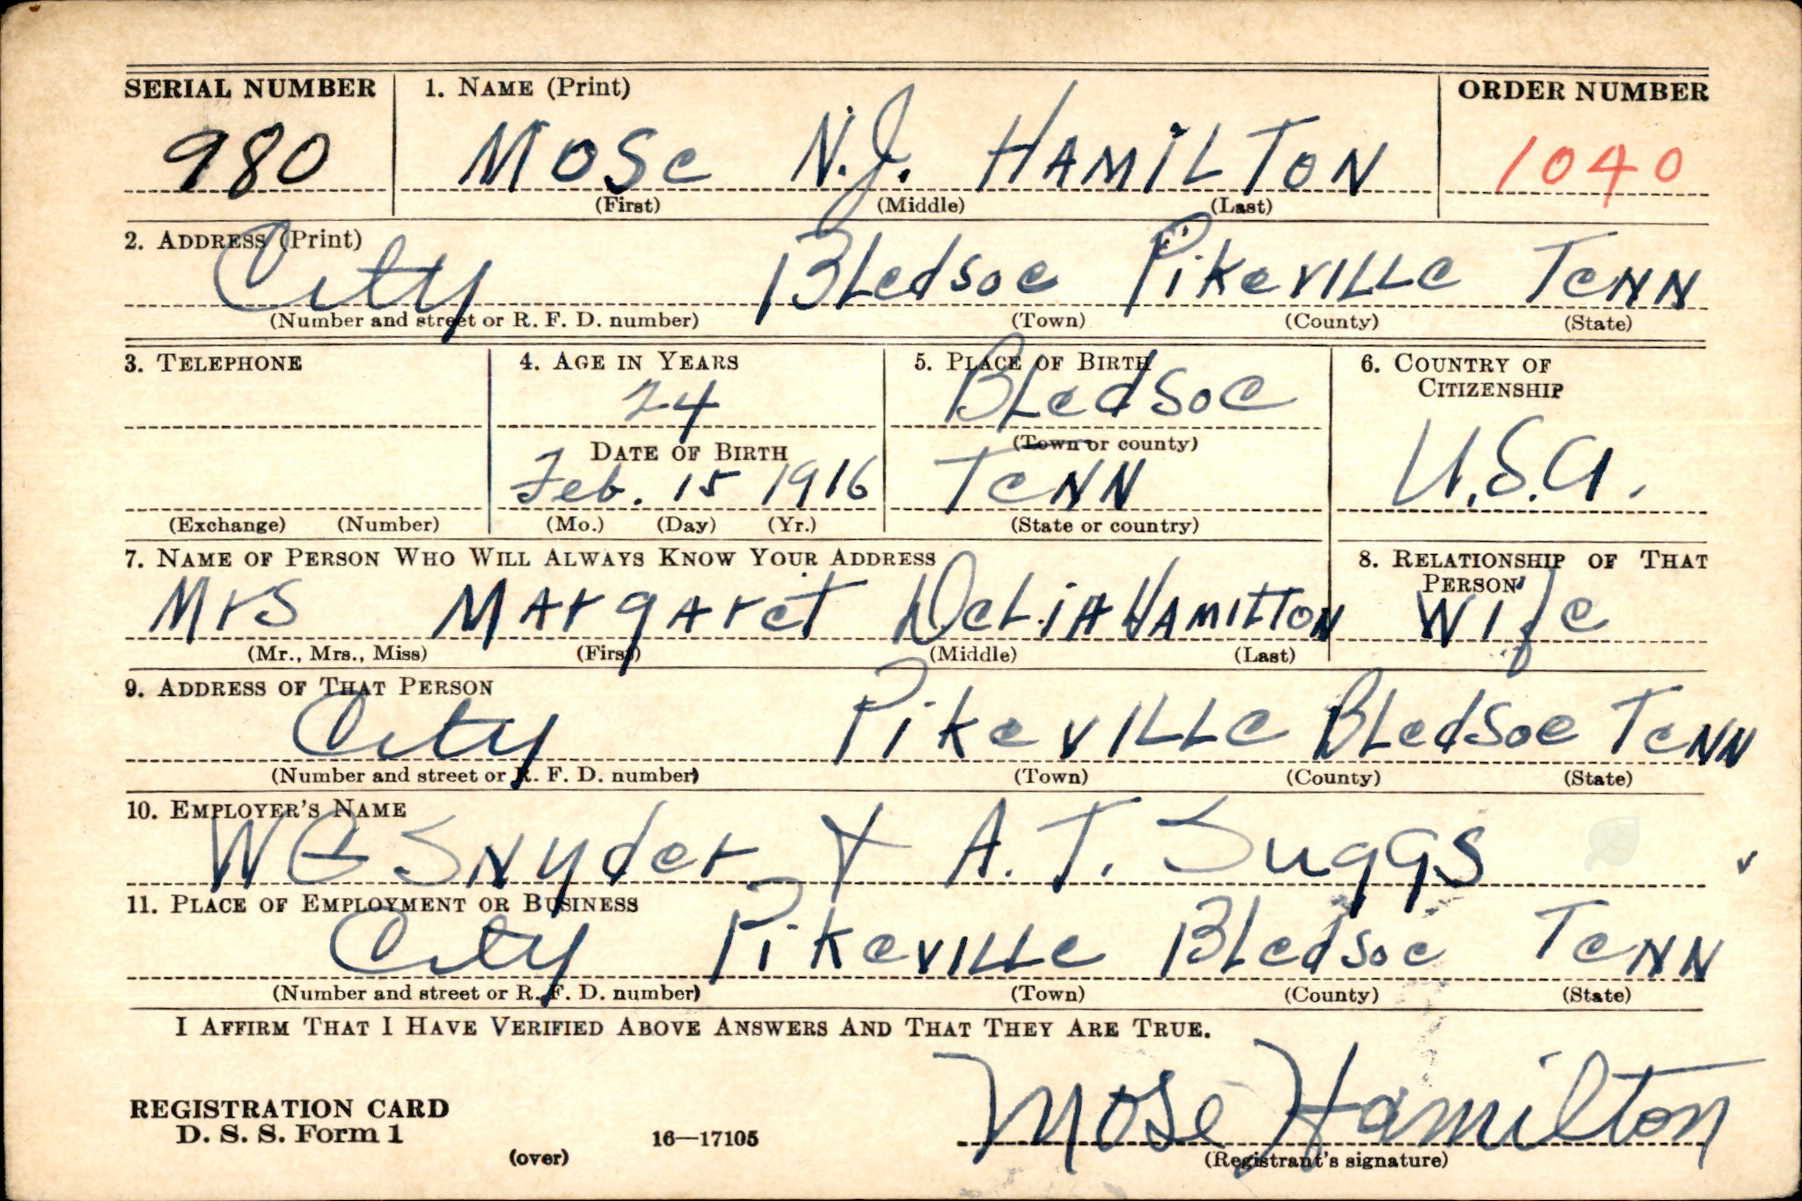 SERIAL NUMBER 1. NAME (Print) ORDER NUMBER
980 MOSe N.J. HAMiLTON 1040
(First) (Middle) (Last)
2. ADDRESS (Print)
City BLedsoe PikeviLLe TeNN
(Number and street or R. F. D. number) (Town) (County) (State)
3. TELEPHONE 4. AGE IN YEARS 5. PLACE OF BIRTH 6. COUNTRY OF CITIZENSHIP
24 BLedsoe
(Town or county)
DATE OF BIRTH
Feb. 15 1916 TeNN U.S.A.
(Exchange) (Number) (Mo.) (Day) (Yr.) (State or country)
7. NAME OF PERSON WHO WILL ALWAYS KNOW YOUR ADDRESS 8. RELATIONSHIP OF THAT PERSON
Mrs MArgAret DeLiA HAMILTON Wife
(Mr., Mrs., Miss) (First) (Middle) (Last)
9. ADDRESS OF THAT PERSON
City PikeviLLe BLedsoe TeNN
(Number and street or R. F. D. number) (Town) (County) (State)
10. EMPLOYER'S NAME
Snyder & A.T. Suggs
11. PLACE OF EMPLOYMENT OR BUSINESS
City PikeviLLe BLedsoe TeNN
(Number and street or R. F. D. number) (Town) (County) (State)
I AFFIRM THAT I HAVE VERIFIED ABOVE ANSWERS AND THAT THEY ARE TRUE.
REGISTRATION CARD
D. S. S. Form 1 Mose Hamilton
(over) 16—17105 (Registrant's signature)